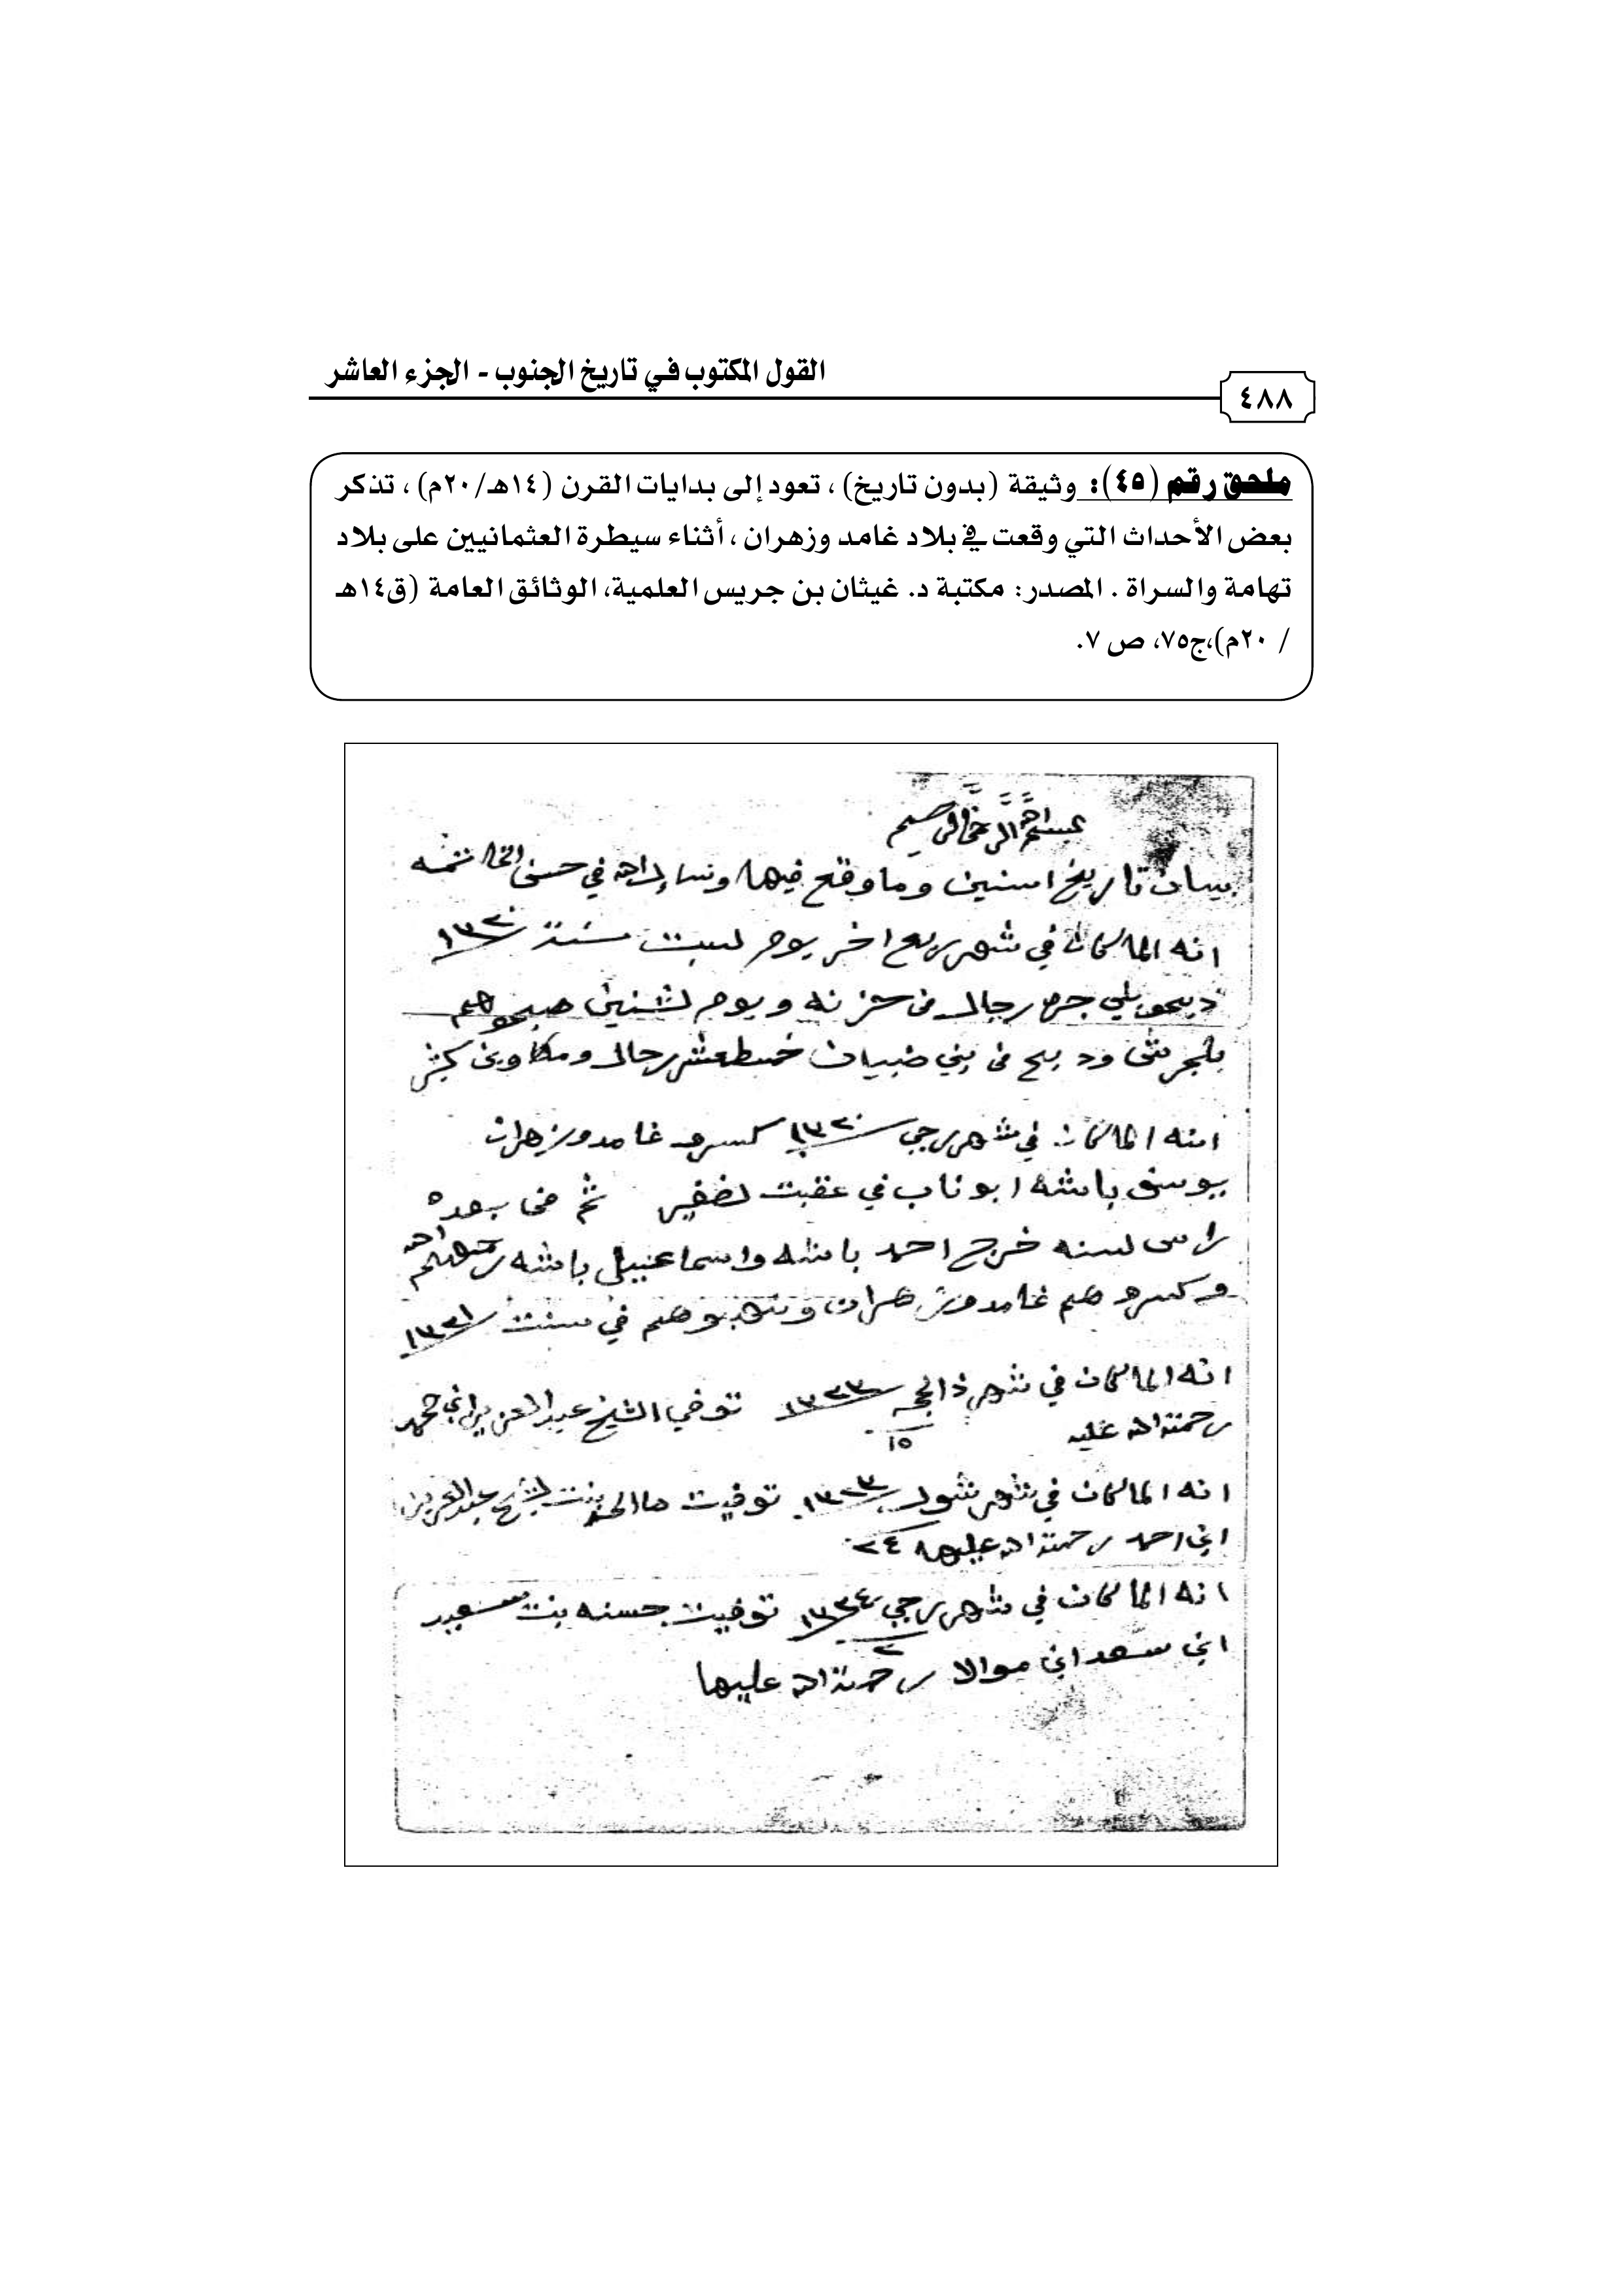 القول المكتوب في تاريخ الجنوب - الجزء العاشر
٤٨٨
ملحق رقم (٤٥): وثيقة (بدون تاريخ) ، تعود إلى بدايات القرن (١٤هـ/٢٠م) ، تذكر
بعض الأحداث التي وقعت في بلاد غامد وزهران ، أثناء سيطرة العثمانيين على بلاد
تهامة والسراة . المصدر: مكتبة د. غيثان بن جريس العلمية، الوثائق العامة (ق١٤هـ
/ ٢٠م)،ج٧٥، ص ٧.
بسم الله الرحمن الرحيم
بيان تاريخ اسنين وما وقع فيها ونساء الله في حسن الخاتمه
انه الما كان في شهر ربيع اخر يوم لسبت سنة ١٣٢٠
رجال من خزنه ويوم لثنين صبحوهم
بلجرشي وذبح من بني ضبيان خمسطعشر رجال ومكاوين كثير
انه الما كان في شهر رجب ١٣٢٠ كسرو غامد وزهران
يوسف باشه ابو ناب في عقبت لضفير ثم من بعده
راس لسنه خرج احمد باشه واسماعيل باشه رحمهم الله
وكسرو هم غامد وزهران ونهبوهم في سنت ١٣٢١
انه الما كان في شهر ذالحجه ١٣٢٣ توفي الشيخ عبدالعزيز ابن محمد
رحمة الله عليه ١٥
انه الما كان في شهر شول ١٣٢٣ توفيت بنت لشيخ عبدالعزيز
ابن احمد رحمة الله عليها ٢٤
انه الما كان في شهر رجب ١٣٢٤ توفيت حسنه بنت سعيد
٢
ابن سعد ابن موالا رحمة الله عليها